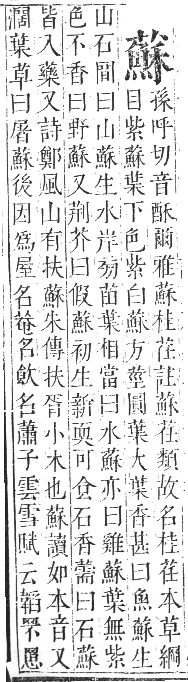 蘇
孫呼切音酥爾雅蘇桂荏註蘇荏類故名桂荏本草綱
目紫蘇葉下色紫白蘇方莖圓葉大葉香甚曰魚蘇生
山石間曰山蘇生水岸旁苗葉相當曰水蘇亦曰雞蘇葉無紫
色不香曰野蘇又荆芥曰假蘇初生新更可食石香薷曰石蘇
皆入藥又詩鄭風山有扶蘇朱傳扶胥小木也蘇讀如本音又
闊葉草曰屠蘇後因爲屋名菴名飮名蕭子雲雪賦云韜罘罳